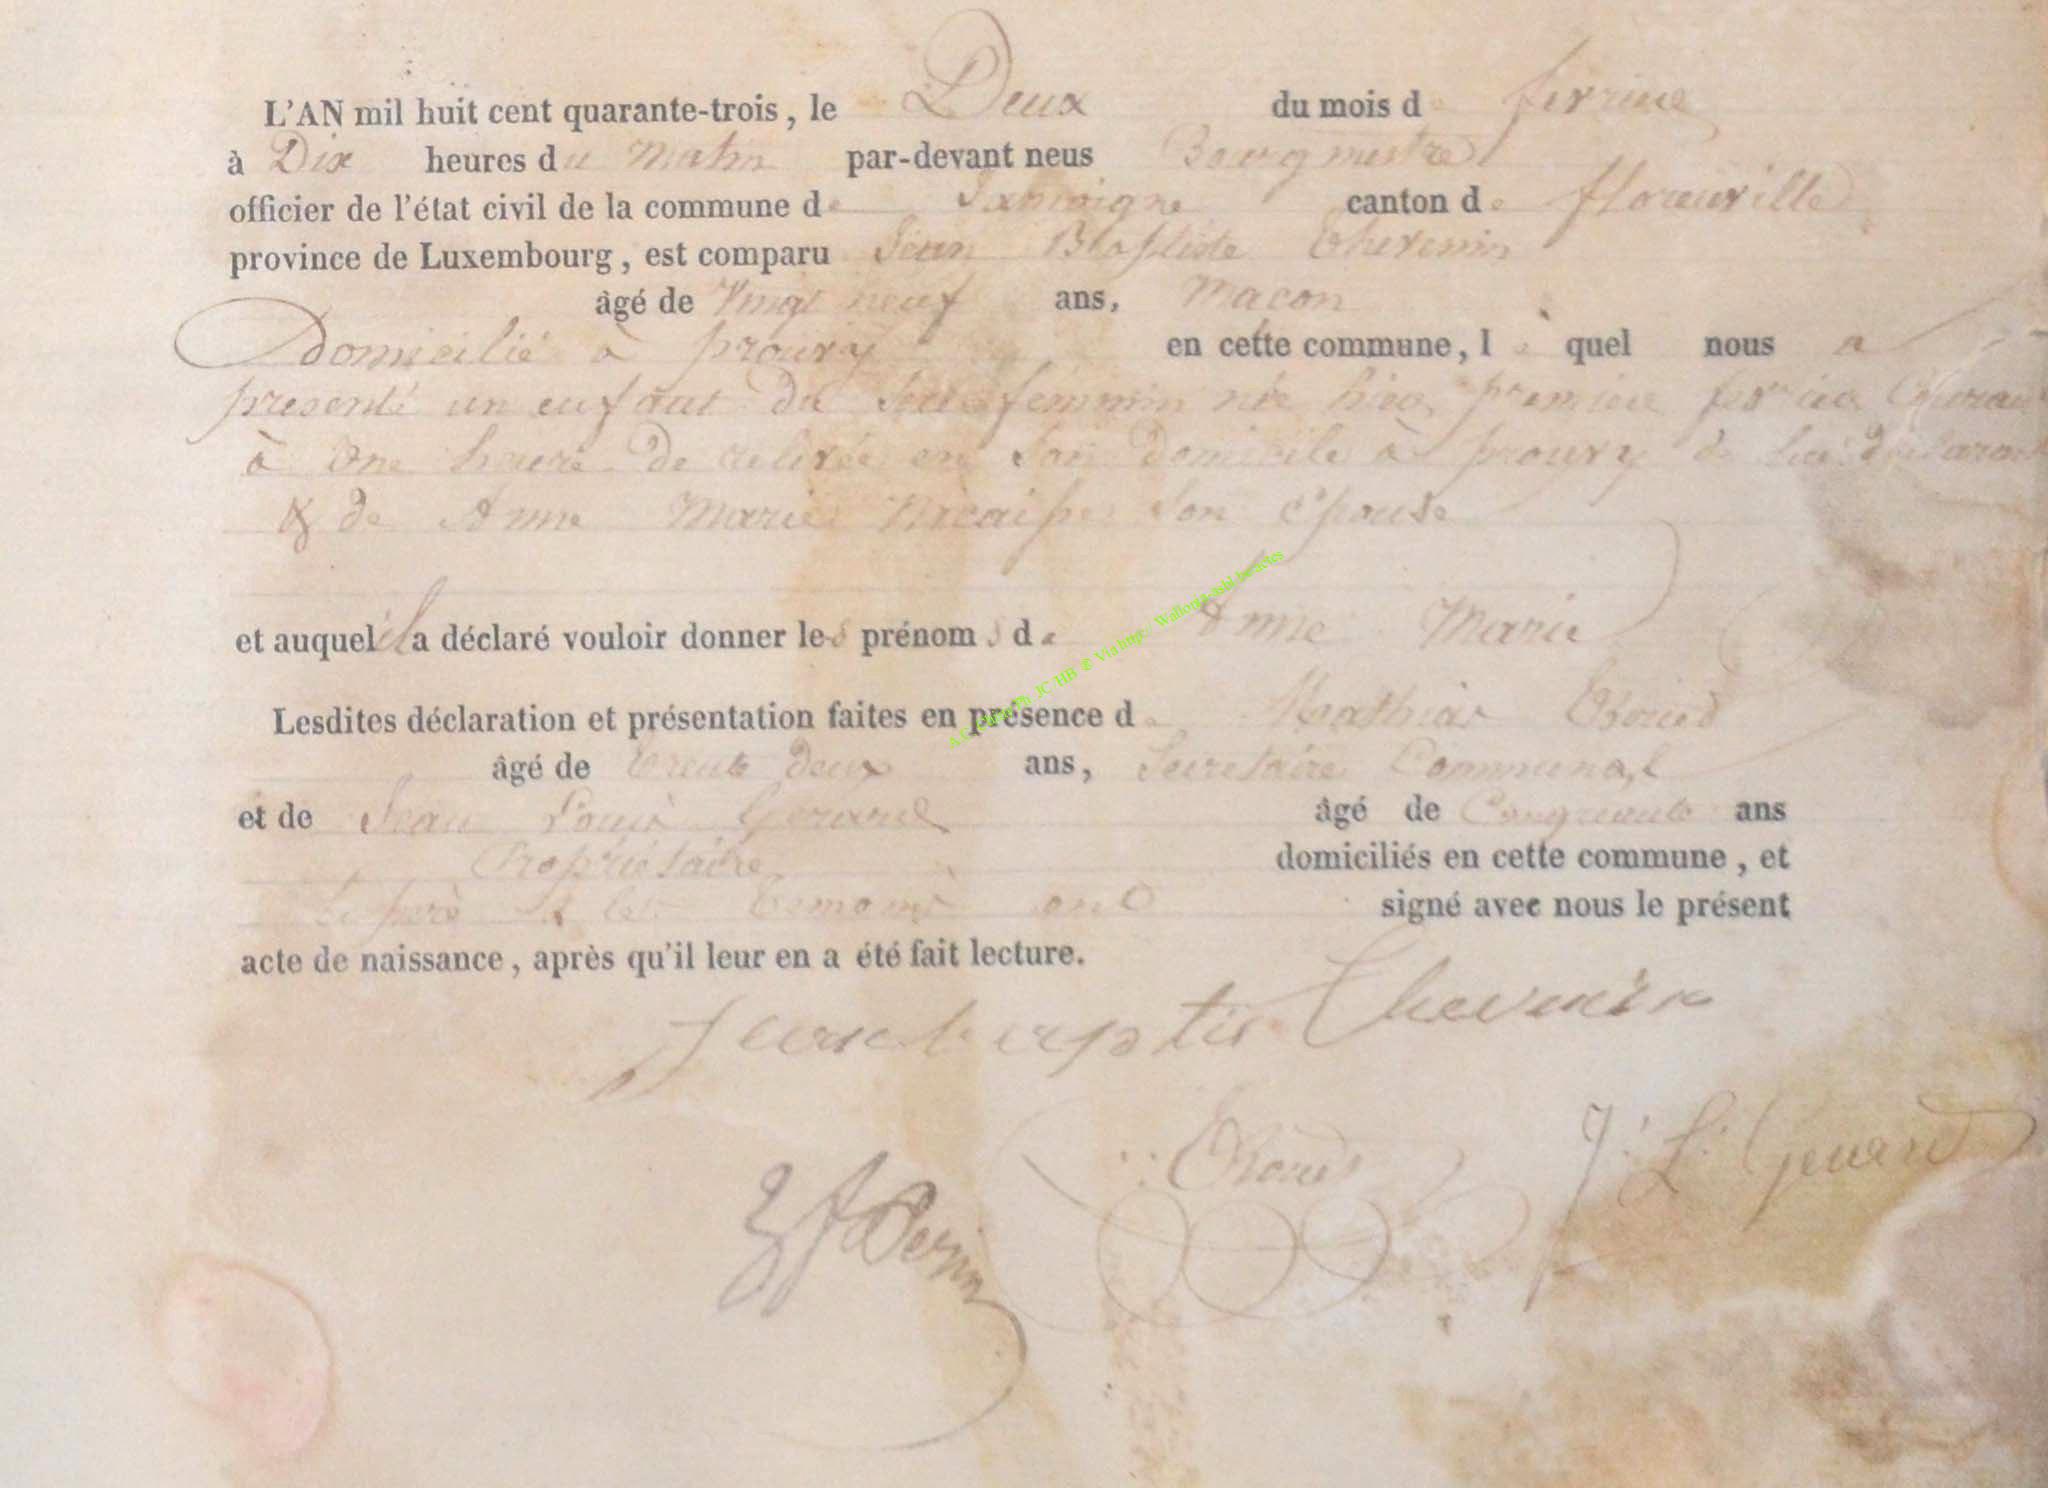 L'AN mil huit cent quarante-trois, le Deux du mois de fevrier
à Dix heures du Matin par-devant nous Bourgmestre
officier de l'état civil de la commune de Jamoigne canton de florenville
province de Luxembourg, est comparu Jean Baptiste Thevenin
âgé de Vingt neuf ans, Macon
Domicilié à prouvy en cette commune, le quel nous a
presenté un enfant du Sexe feminin née hier premier fevrier Courant
à one heure de relevée en Son domicile à prouvy de lui déclarant
& de Anne Marie Nicaise Son Epouse
et auquel il a déclaré vouloir donner les prénoms de Anne Marie
Lesdites déclaration et présentation faites en présence de Mathias
âgé de trente deux ans, Secretaire Communal
et de Jean Louis Gerard âgé de Cinquante ans
Propriétaire domiciliés en cette commune, et
Le père & les temoins ont signé avec nous le présent
acte de naissance, après qu'il leur en a été fait lecture.
Jean baptis Thevenin
J. L. Gerard
Perin